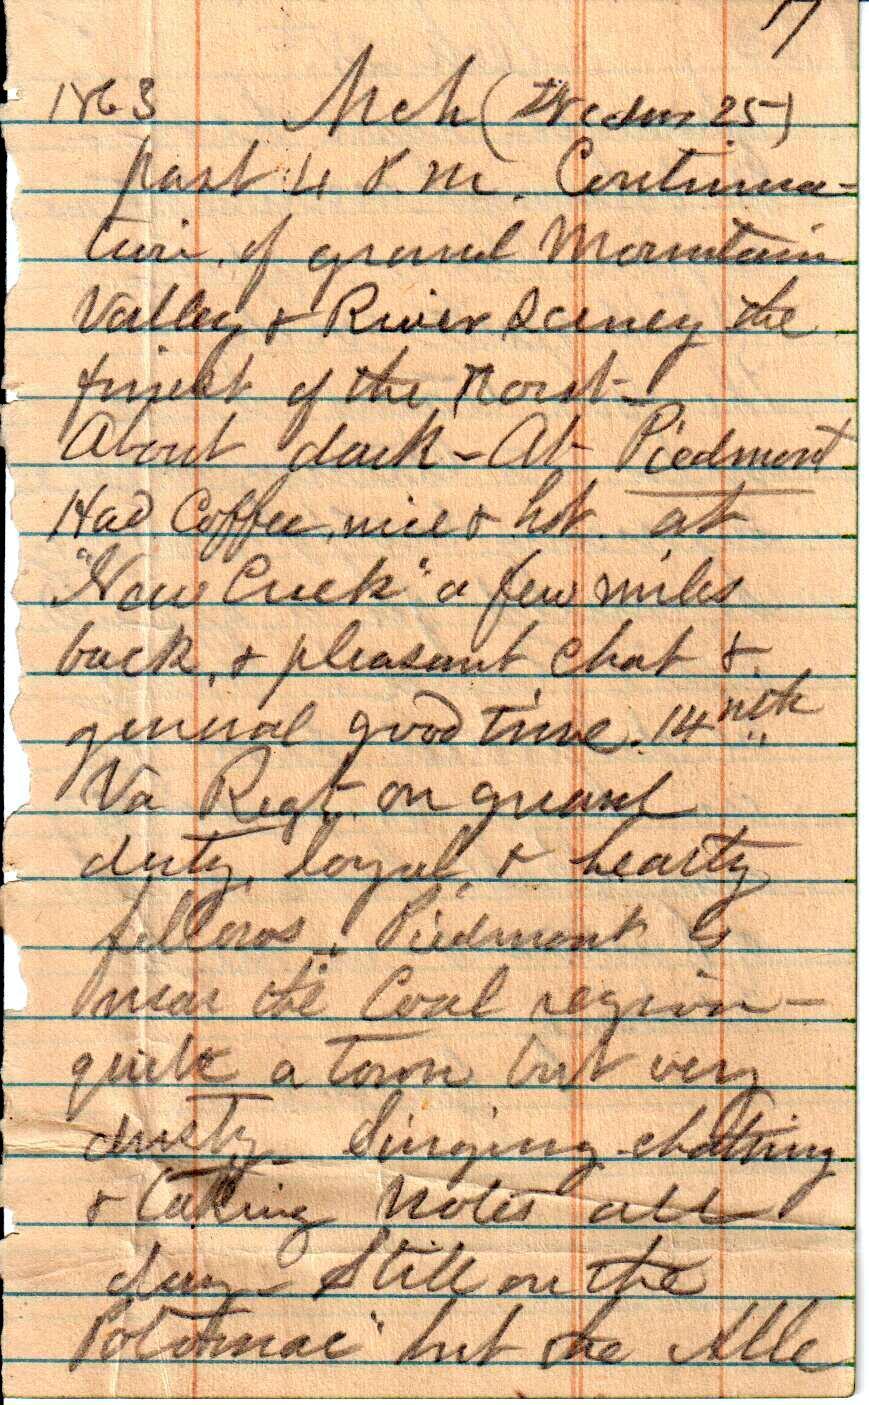 17
1863 Mch (Wednes 25)
past 4 P.M. Continua-
tion, of grand Mountain
Valley & River Sceney the
finest of the
About dark - At Piedmont
Had Coffee, nice & hot at
"New Creek" a few miles
back, & pleasant chat &
general good time. 14th
Va Regt. on guard
duty, loyal, & hearty
fellows - Piedmont is
near the Coal region -
quite a town but very
dusty - Singing chatting
& taking notes all
day - Still on the
"Potomac" but the Alle